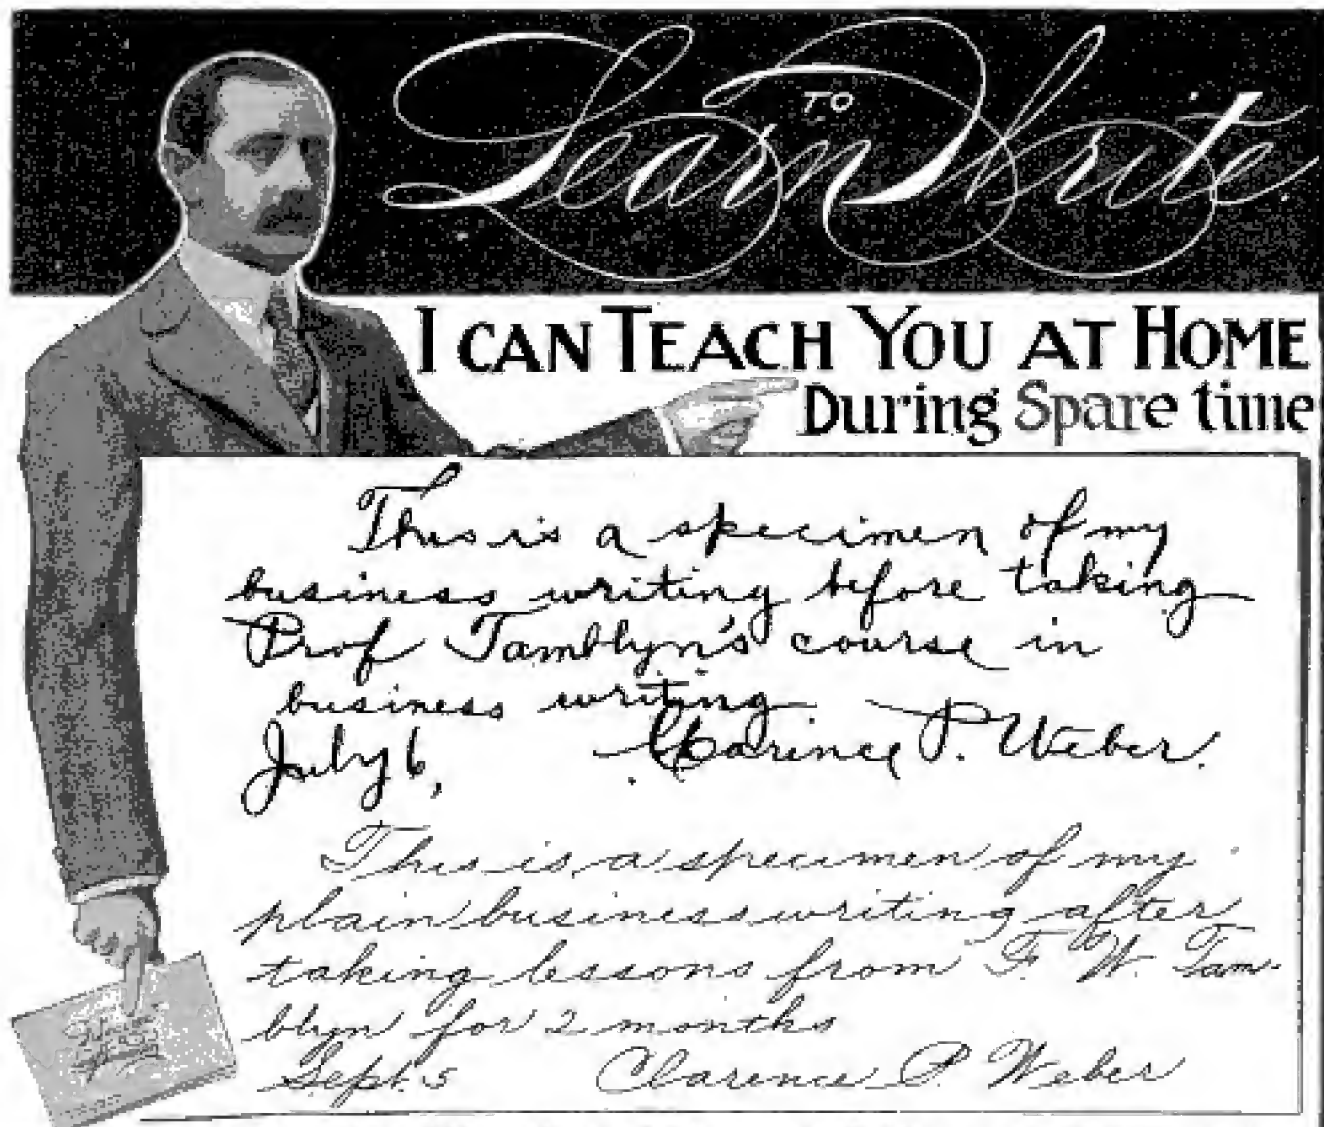 Learn TO Write.
I CAN TEACH YOU AT HOME
During Spare time
This is a specimen of my
business writing before taking
Prof Tamblyn's course in
business writing.
July 6, Clarence P. Weber.
This is a specimen of my
plain business writing after
taking lessons from F. W. Tam-
blyn for 2 months
Sept. 5 Clarence P. Weber